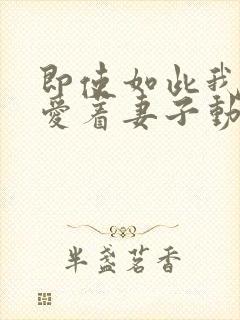 即使如此我
愛着妻子動
半盏茗香